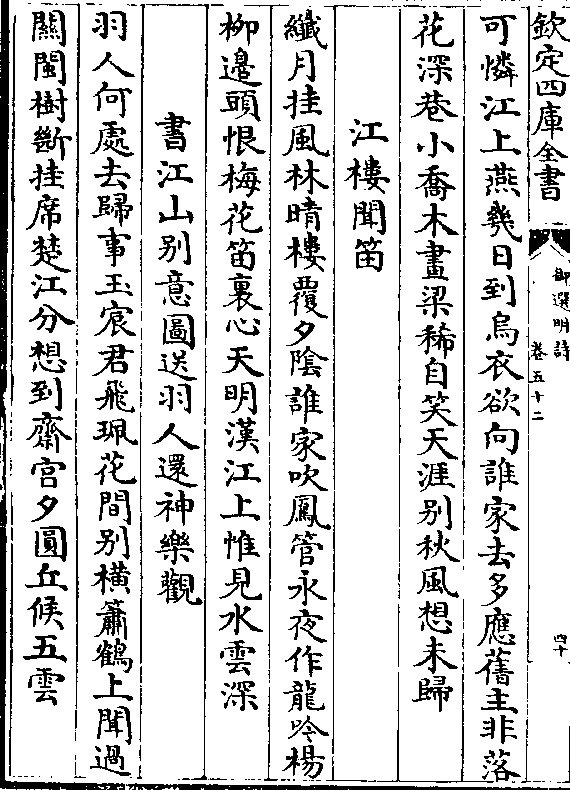 欽定四庫全書
御選明詩
卷五十二
四十
可憐江上燕幾日到烏衣欲向誰家去多應舊主非落
花深巷小喬木畫梁稀自笑天涯别秋風想未歸
江樓聞笛
纖月挂風林晴樓覆夕陰誰家吹鳳管永夜作龍吟楊
柳邉頭恨梅花笛裏心天明漢江上惟見水雲深
書江山别意圖送羽人還神樂觀
羽人何處去歸事玉宸君飛珮花間别橫簫鶴上聞過
關閩樹斷挂席楚江分想到齋宫夕圓丘候五雲